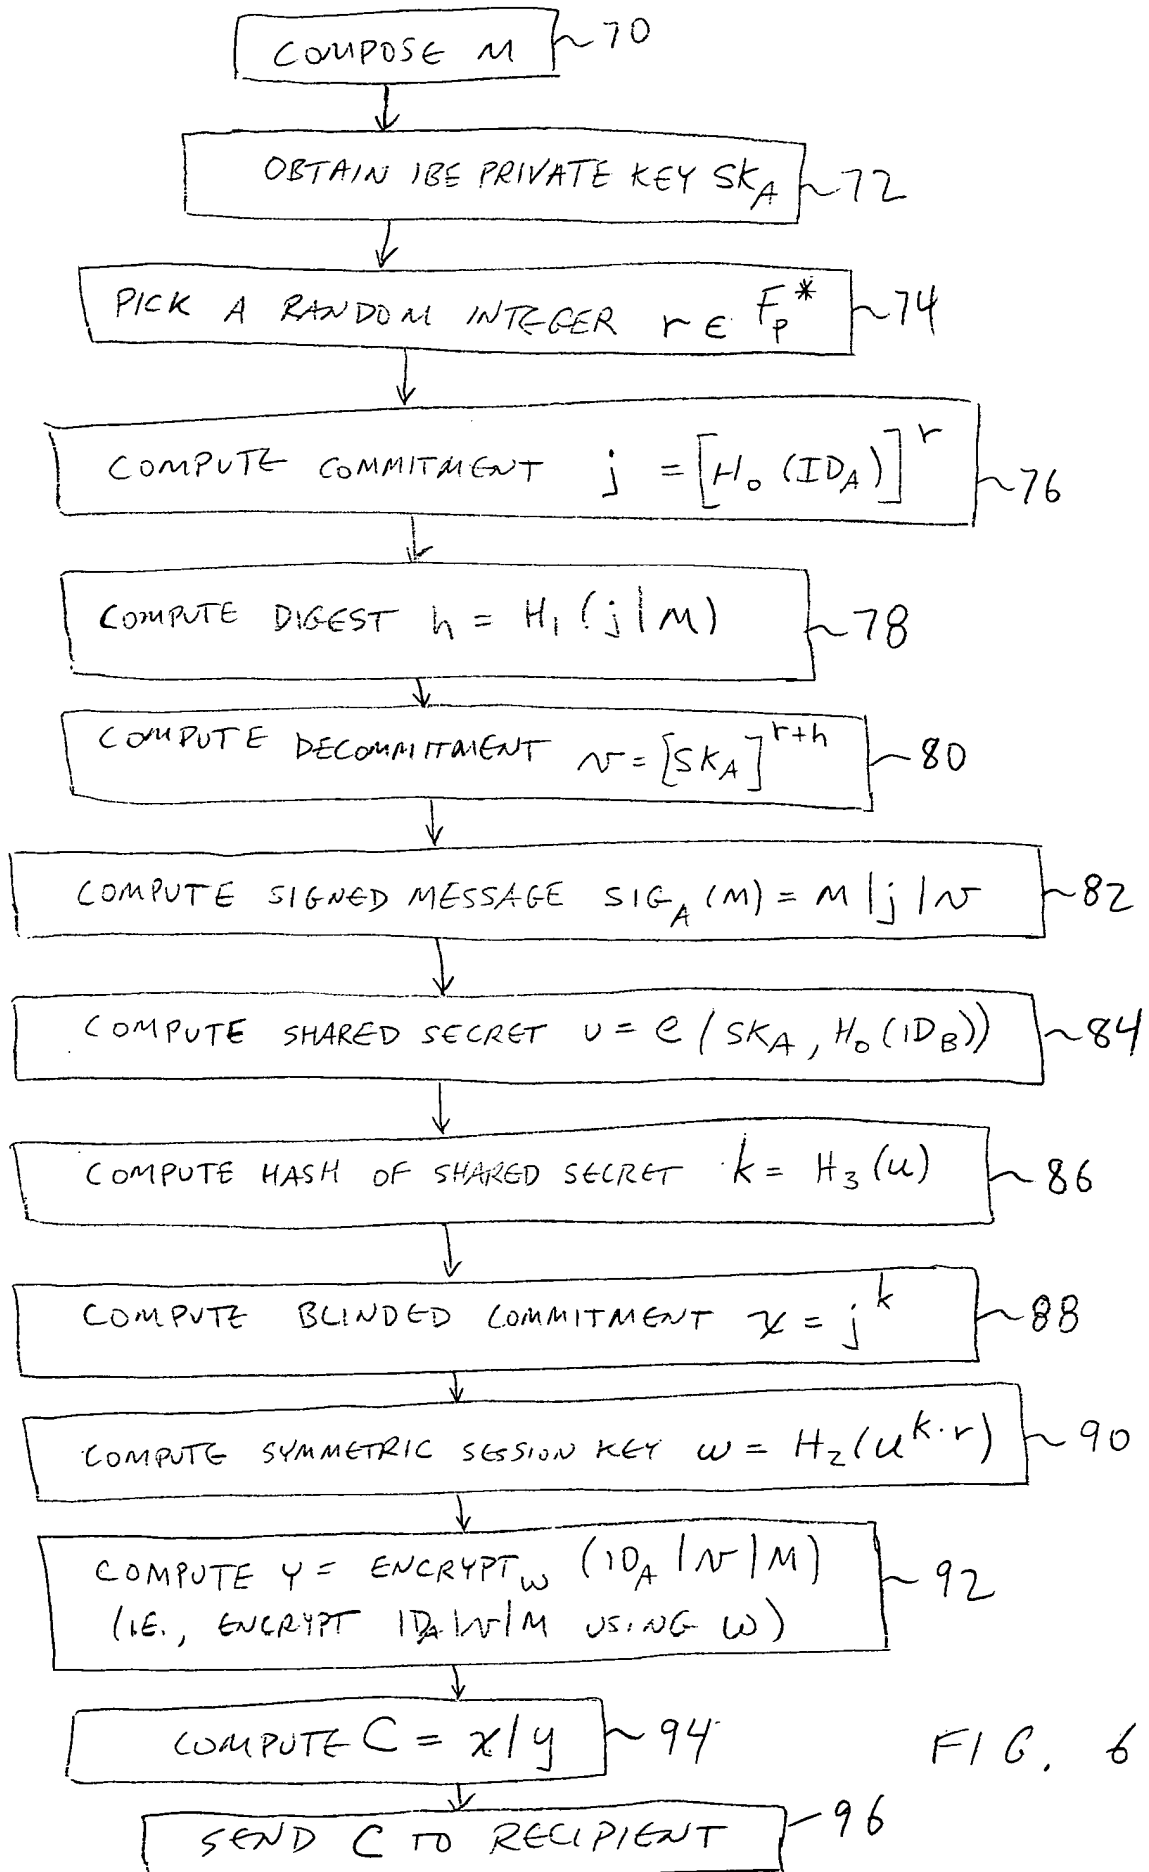 COMPOSE M 70
OBTAIN IBE PRIVATE KEY SK_A 72
PICK A RANDOM INTEGER r ∈ F_p^* 74
COMPUTE COMMITMENT j = [H_0 (ID_A)]^r 76
COMPUTE DIGEST h = H_1 (j | M) 78
COMPUTE DECOMMITMENT v = [SK_A]^{r+h} 80
COMPUTE SIGNED MESSAGE SIG_A (M) = M | j | v 82
COMPUTE SHARED SECRET u = e (SK_A, H_0 (ID_B)) 84
COMPUTE HASH OF SHARED SECRET k = H_3 (u) 86
COMPUTE BLINDED COMMITMENT x = j^k 88
COMPUTE SYMMETRIC SESSION KEY w = H_2 (u^{k·r}) 90
COMPUTE y = ENCRYPT_w (ID_A | v | M) 92
(I.E., ENCRYPT ID_A | v | M USING w)
COMPUTE C = x | y 94
FIG. 6
SEND C TO RECIPIENT 96